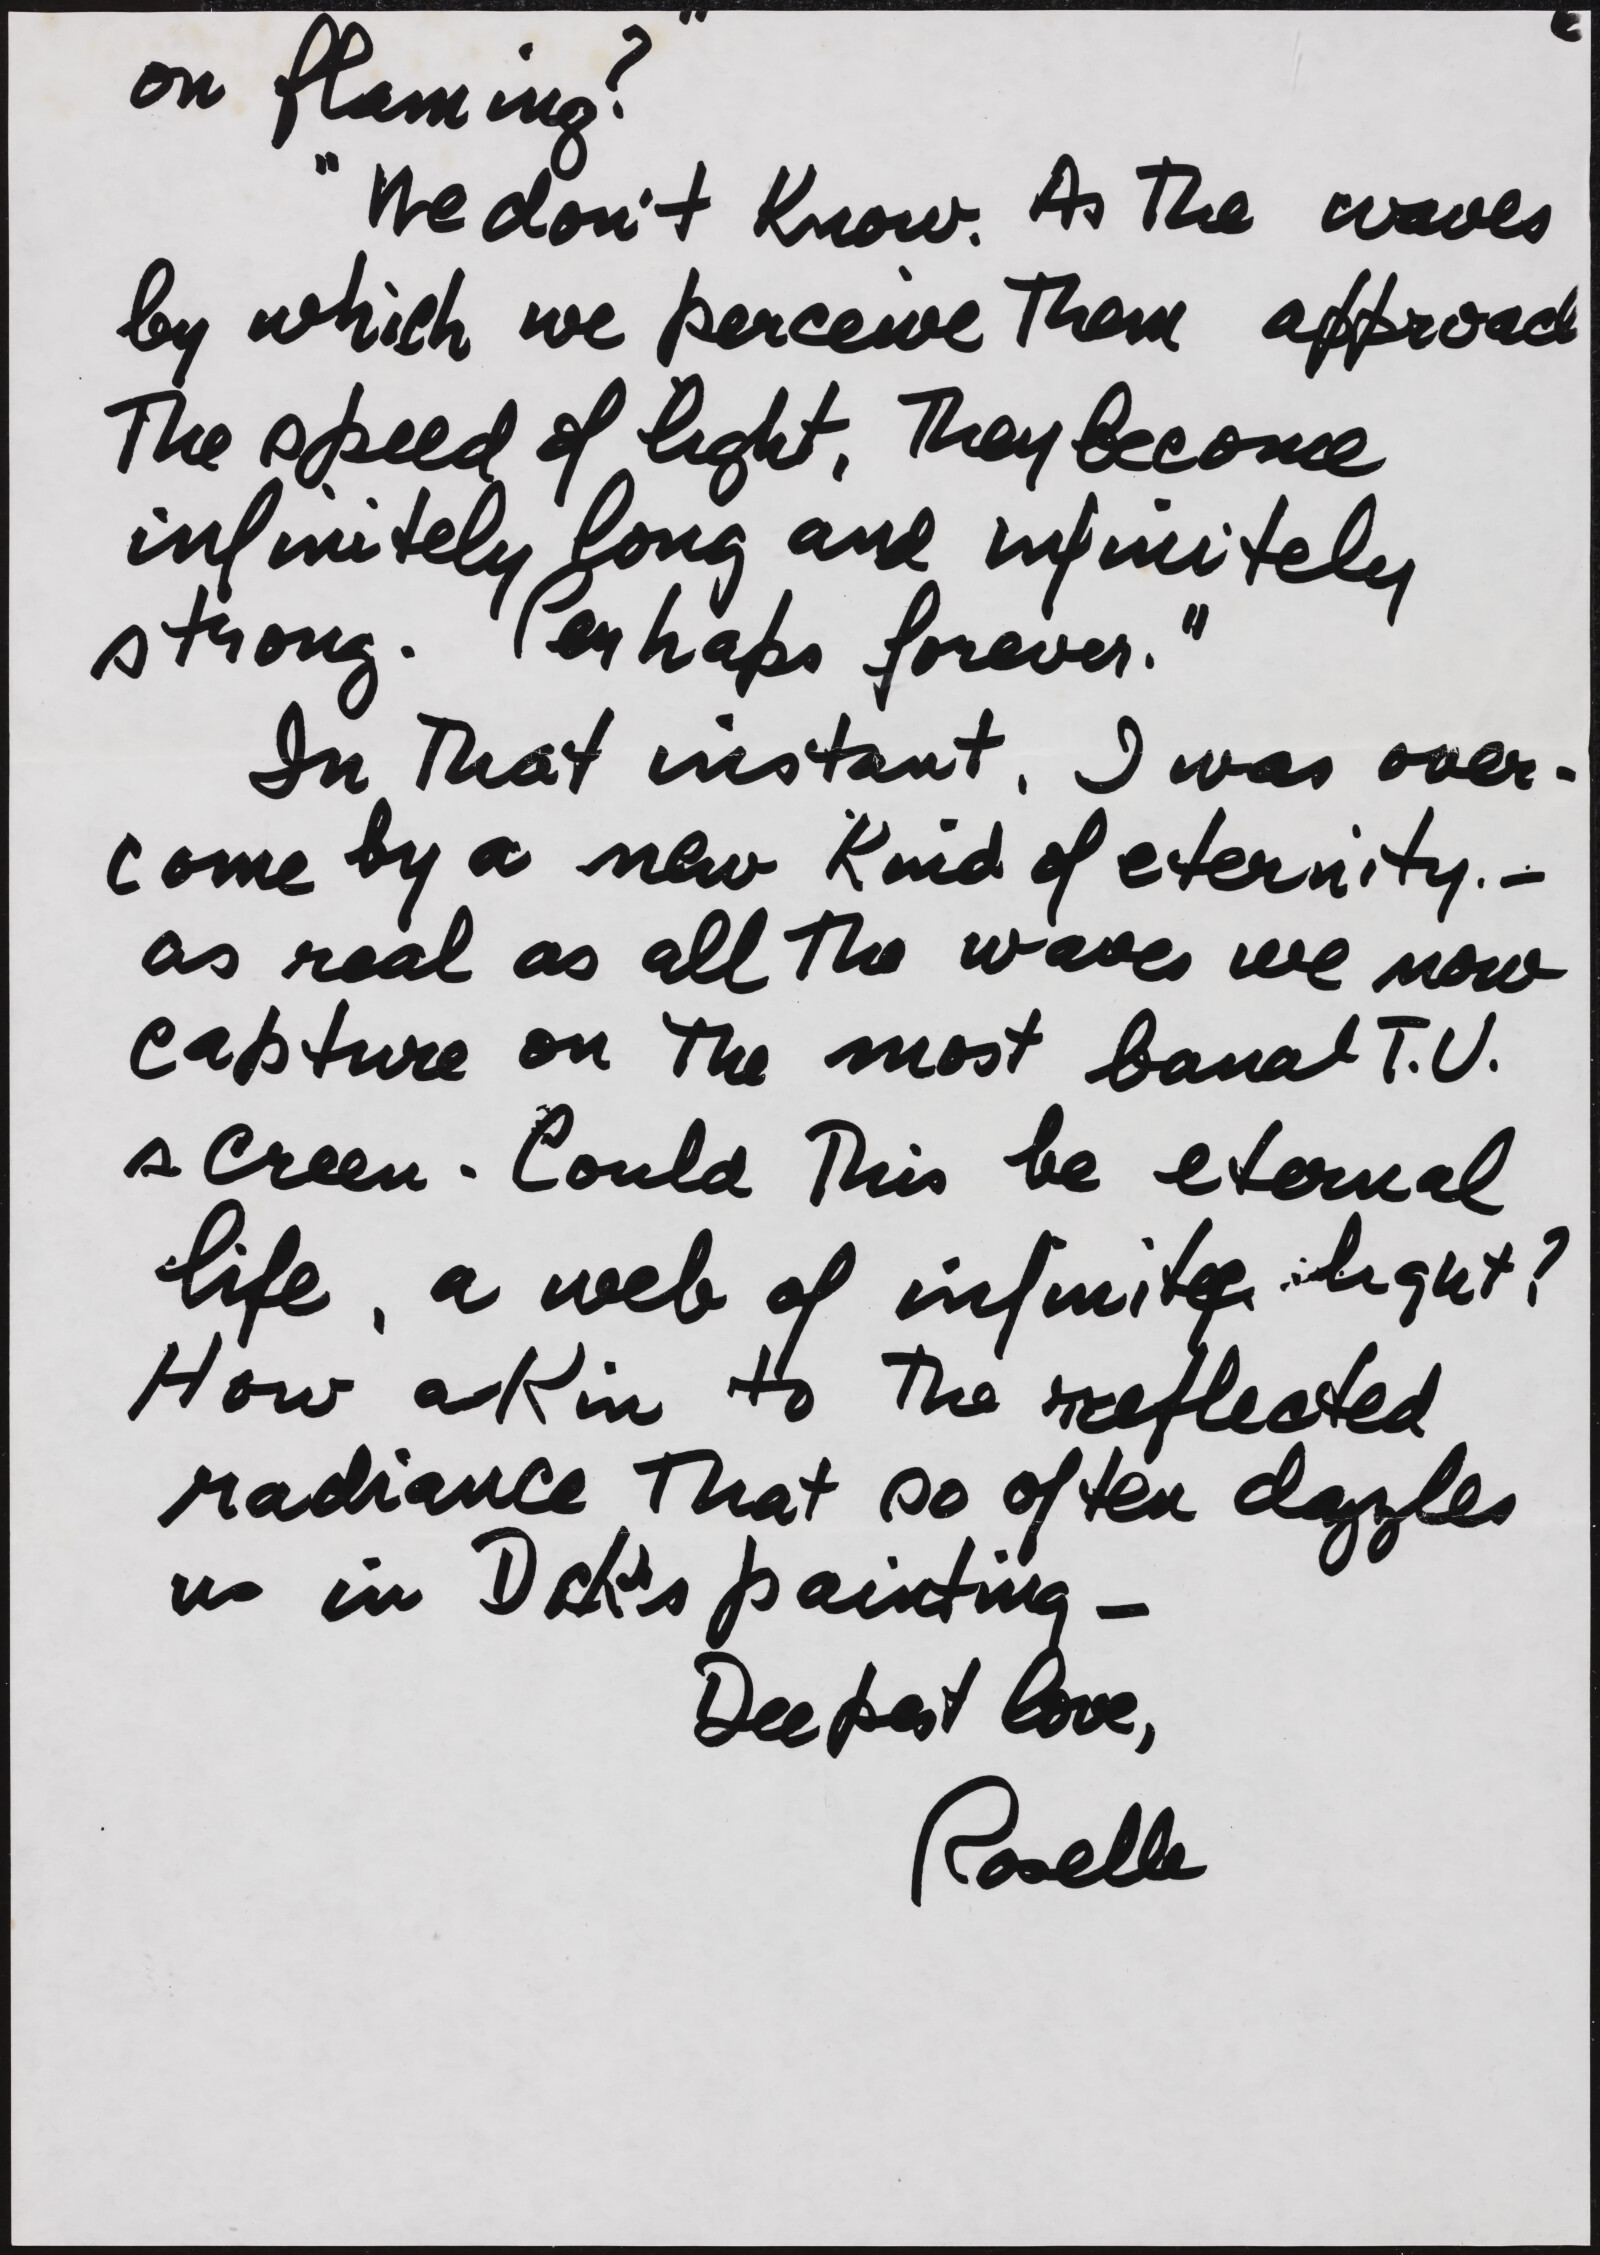 on flaming?"
"We don't Know. As The waves
by which we perceive Them approach
The speed of light, They become
infinitely long and infinitely
strong. Perhaps forever."
In That instant, I was over-
come by a new Kind of eternity. -
as real as all The waves we now
capture on The most banal T.V.
screen. Could This be eternal
life, a web of infinite light?
How aKin to The reflected
radiance That so often dazzles
us in Dick's painting -
Deepest love,
Roselle